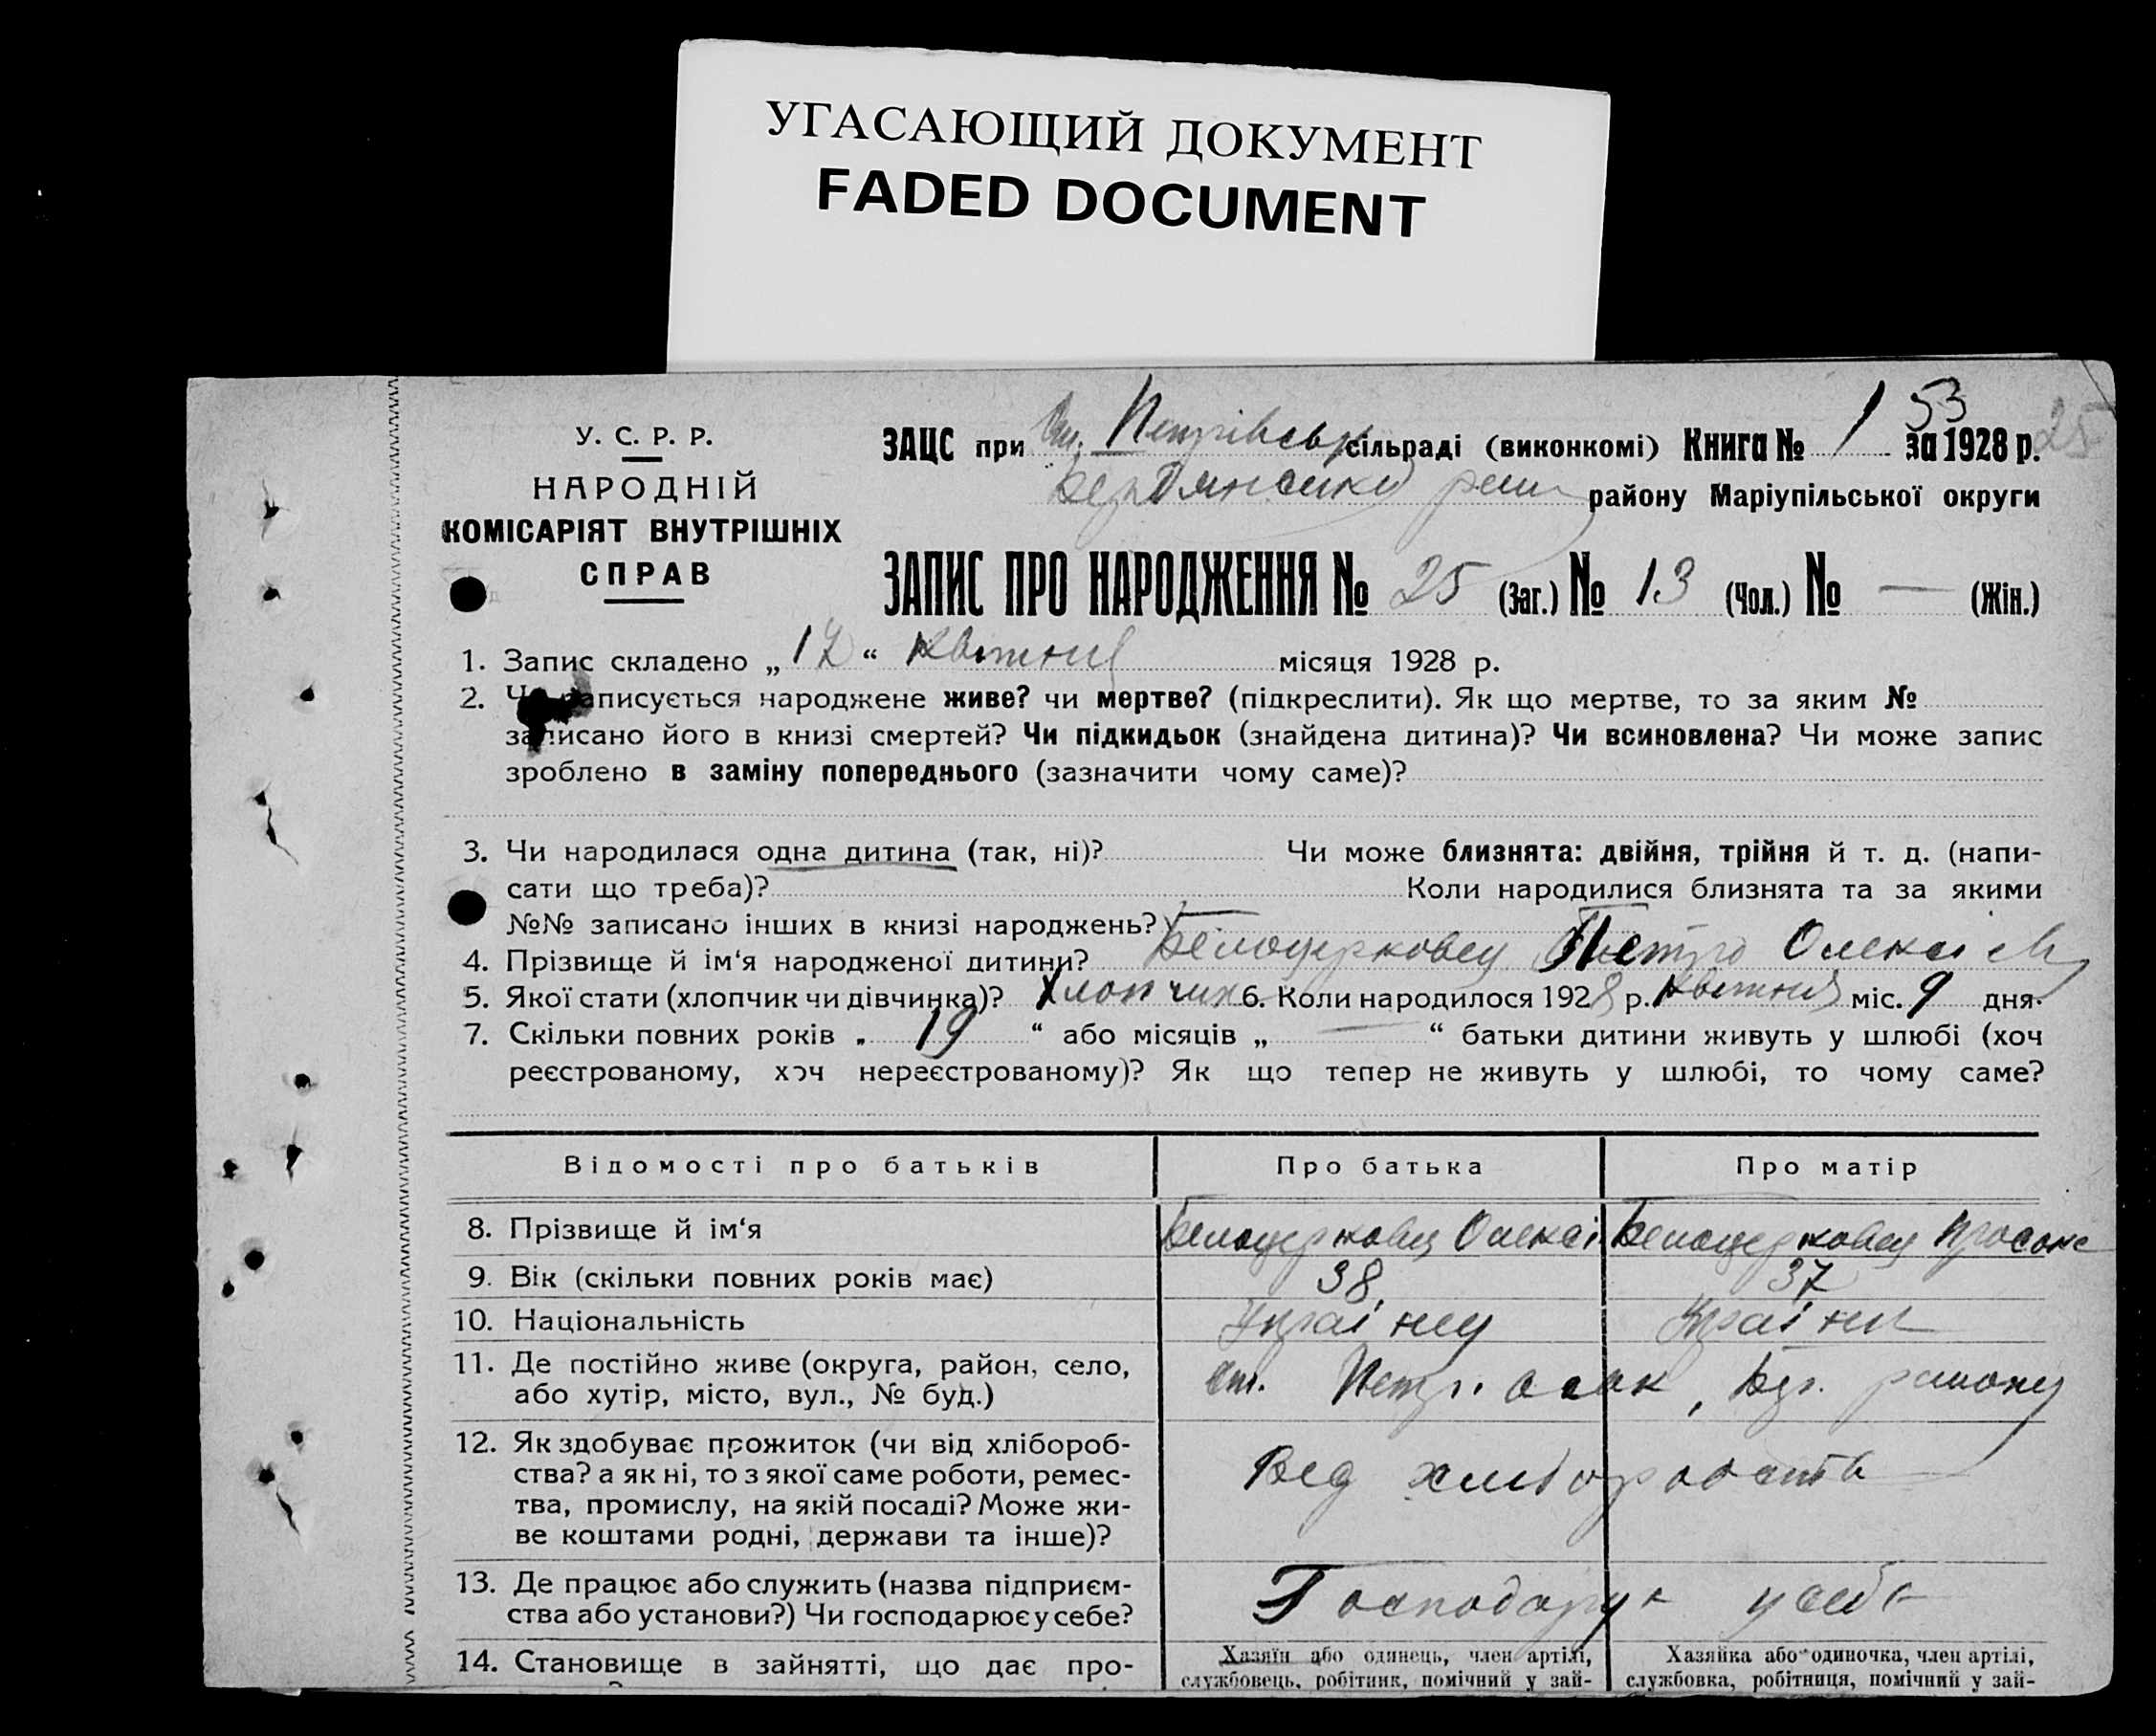 УГАСАЮЩИЙ ДОКУМЕНТ
FADED DOCUMENT
У. С. Р. Р.
НАРОДНІЙ
КОМІСАРІЯТ ВНУТРІШНІХ
СПРАВ
ЗАЦС при Петрівськ сільраді (виконкомі) Книга № 1 за 1928 р.
53
25
району Маріупільської округи
ЗАПИС ПРО НАРОДЖЕННЯ № 25 (Заг.) № 13 (Чол.) № — (Жін.)
1. Запис складено „ 17 “ Квітня місяця 1928 р.
2. Чи записується народжене живе? чи мертве? (підкреслити). Як що мертве, то за яким №
записано його в книзі смертей? Чи підкидьок (знайдена дитина)? Чи всиновлена? Чи може запис
зроблено в заміну попереднього (зазначити чому саме)?
3. Чи народилася одна дитина (так, ні)? Чи може близнята: двійня, трійня й т. д. (напи-
сати що треба)? Коли народилися близнята та за якими
№№ записано інших в книзі народжень?
4. Прізвище й ім‘я народженої дитини? Белоцерковец Петро Олексіев
5. Якої стати (хлопчик чи дівчинка)? Хлопчик 6. Коли народилося 1928 р. Квітня міс. 9 дня.
7. Скільки повних років „ 19 “ або місяців „ — “ батьки дитини живуть у шлюбі (хоч
реєстрованому, хоч нереєстрованому)? Як що тепер не живуть у шлюбі, то чому саме?
Відомості про батьків
Про батька
Про матір
8. Прізвище й ім‘я
Белоцерковец Олексі
Белоцерковец
9. Вік (скільки повних років має)
38
37
10. Національність
Украінец
Украінк
11. Де постійно живе (округа, район, село,
або хутір, місто, вул., № буд.)
району
12. Як здобуває прожиток (чи від хлібороб-
ства? а як ні, то з якої саме роботи, ремес-
тва, промислу, на якій посаді? Може жи-
ве коштами родні, держави та інше)?
Вед хліборобств
13. Де працює або служить (назва підприєм-
ства або установи?) Чи господарює у себе?
Господарує у себе
14. Становище в зайнятті, що дає про-
Хазяїн або одинець, член артілі,
службовець, робітник, помічний у зай-
Хазяйка або одиночка, член артілі,
службовка, робітниця, помічний у зай-